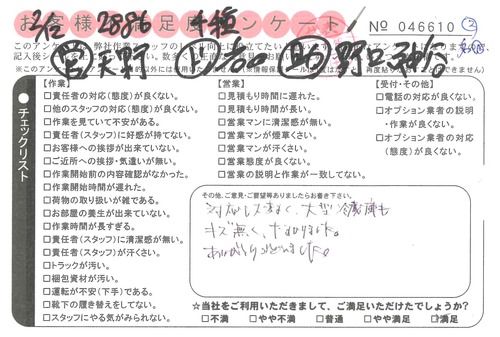 お客様 満足度アンケート
No 046610 ②
2/12 2886 千種
このアンケートは、弊社作業スタッフの
記入後
天野 野口
チェックリスト
【作業】
□責任者の対応(態度)が良くない。
□他のスタッフの対応(態度)が良くない。
□作業を見ていて不安がある。
□責任者(スタッフ)に好感が持てない。
□お客様への挨拶が出来ていない。
□ご近所への挨拶・気遣いが無い。
□作業開始前の内容確認がなかった。
□作業開始時間が遅れた。
□荷物の取り扱いが雑である。
□お部屋の養生が出来ていない。
□作業時間が長すぎる。
□責任者(スタッフ)に清潔感が無い。
□責任者(スタッフ)が汗くさい。
□トラックが汚い。
□梱包資材が汚い。
□運転が不安(下手)である。
□靴下の履き替えをしてない。
□スタッフにやる気がみられない。
【営業】
□見積もり時間に遅れた。
□見積もり時間が長い。
□営業マンに清潔感が無い。
□営業マンが煙草くさい。
□営業マンが汗くさい。
□営業態度が良くない。
□営業の説明と作業が一致してない。
【受付・その他】
□電話の対応が良くない。
□オプション業者の説明
・作業が良くない。
□オプション業者の対応
(態度)が良くない。
その他、ご意見・ご要望等ありましたらお書き下さい。
大型冷蔵庫も
キズ無く、
ありがとうございました。
☆当社をご利用いただきまして、ご満足いただけたでしょうか?
□不満 □やや不満 □普通 □やや満足 □満足